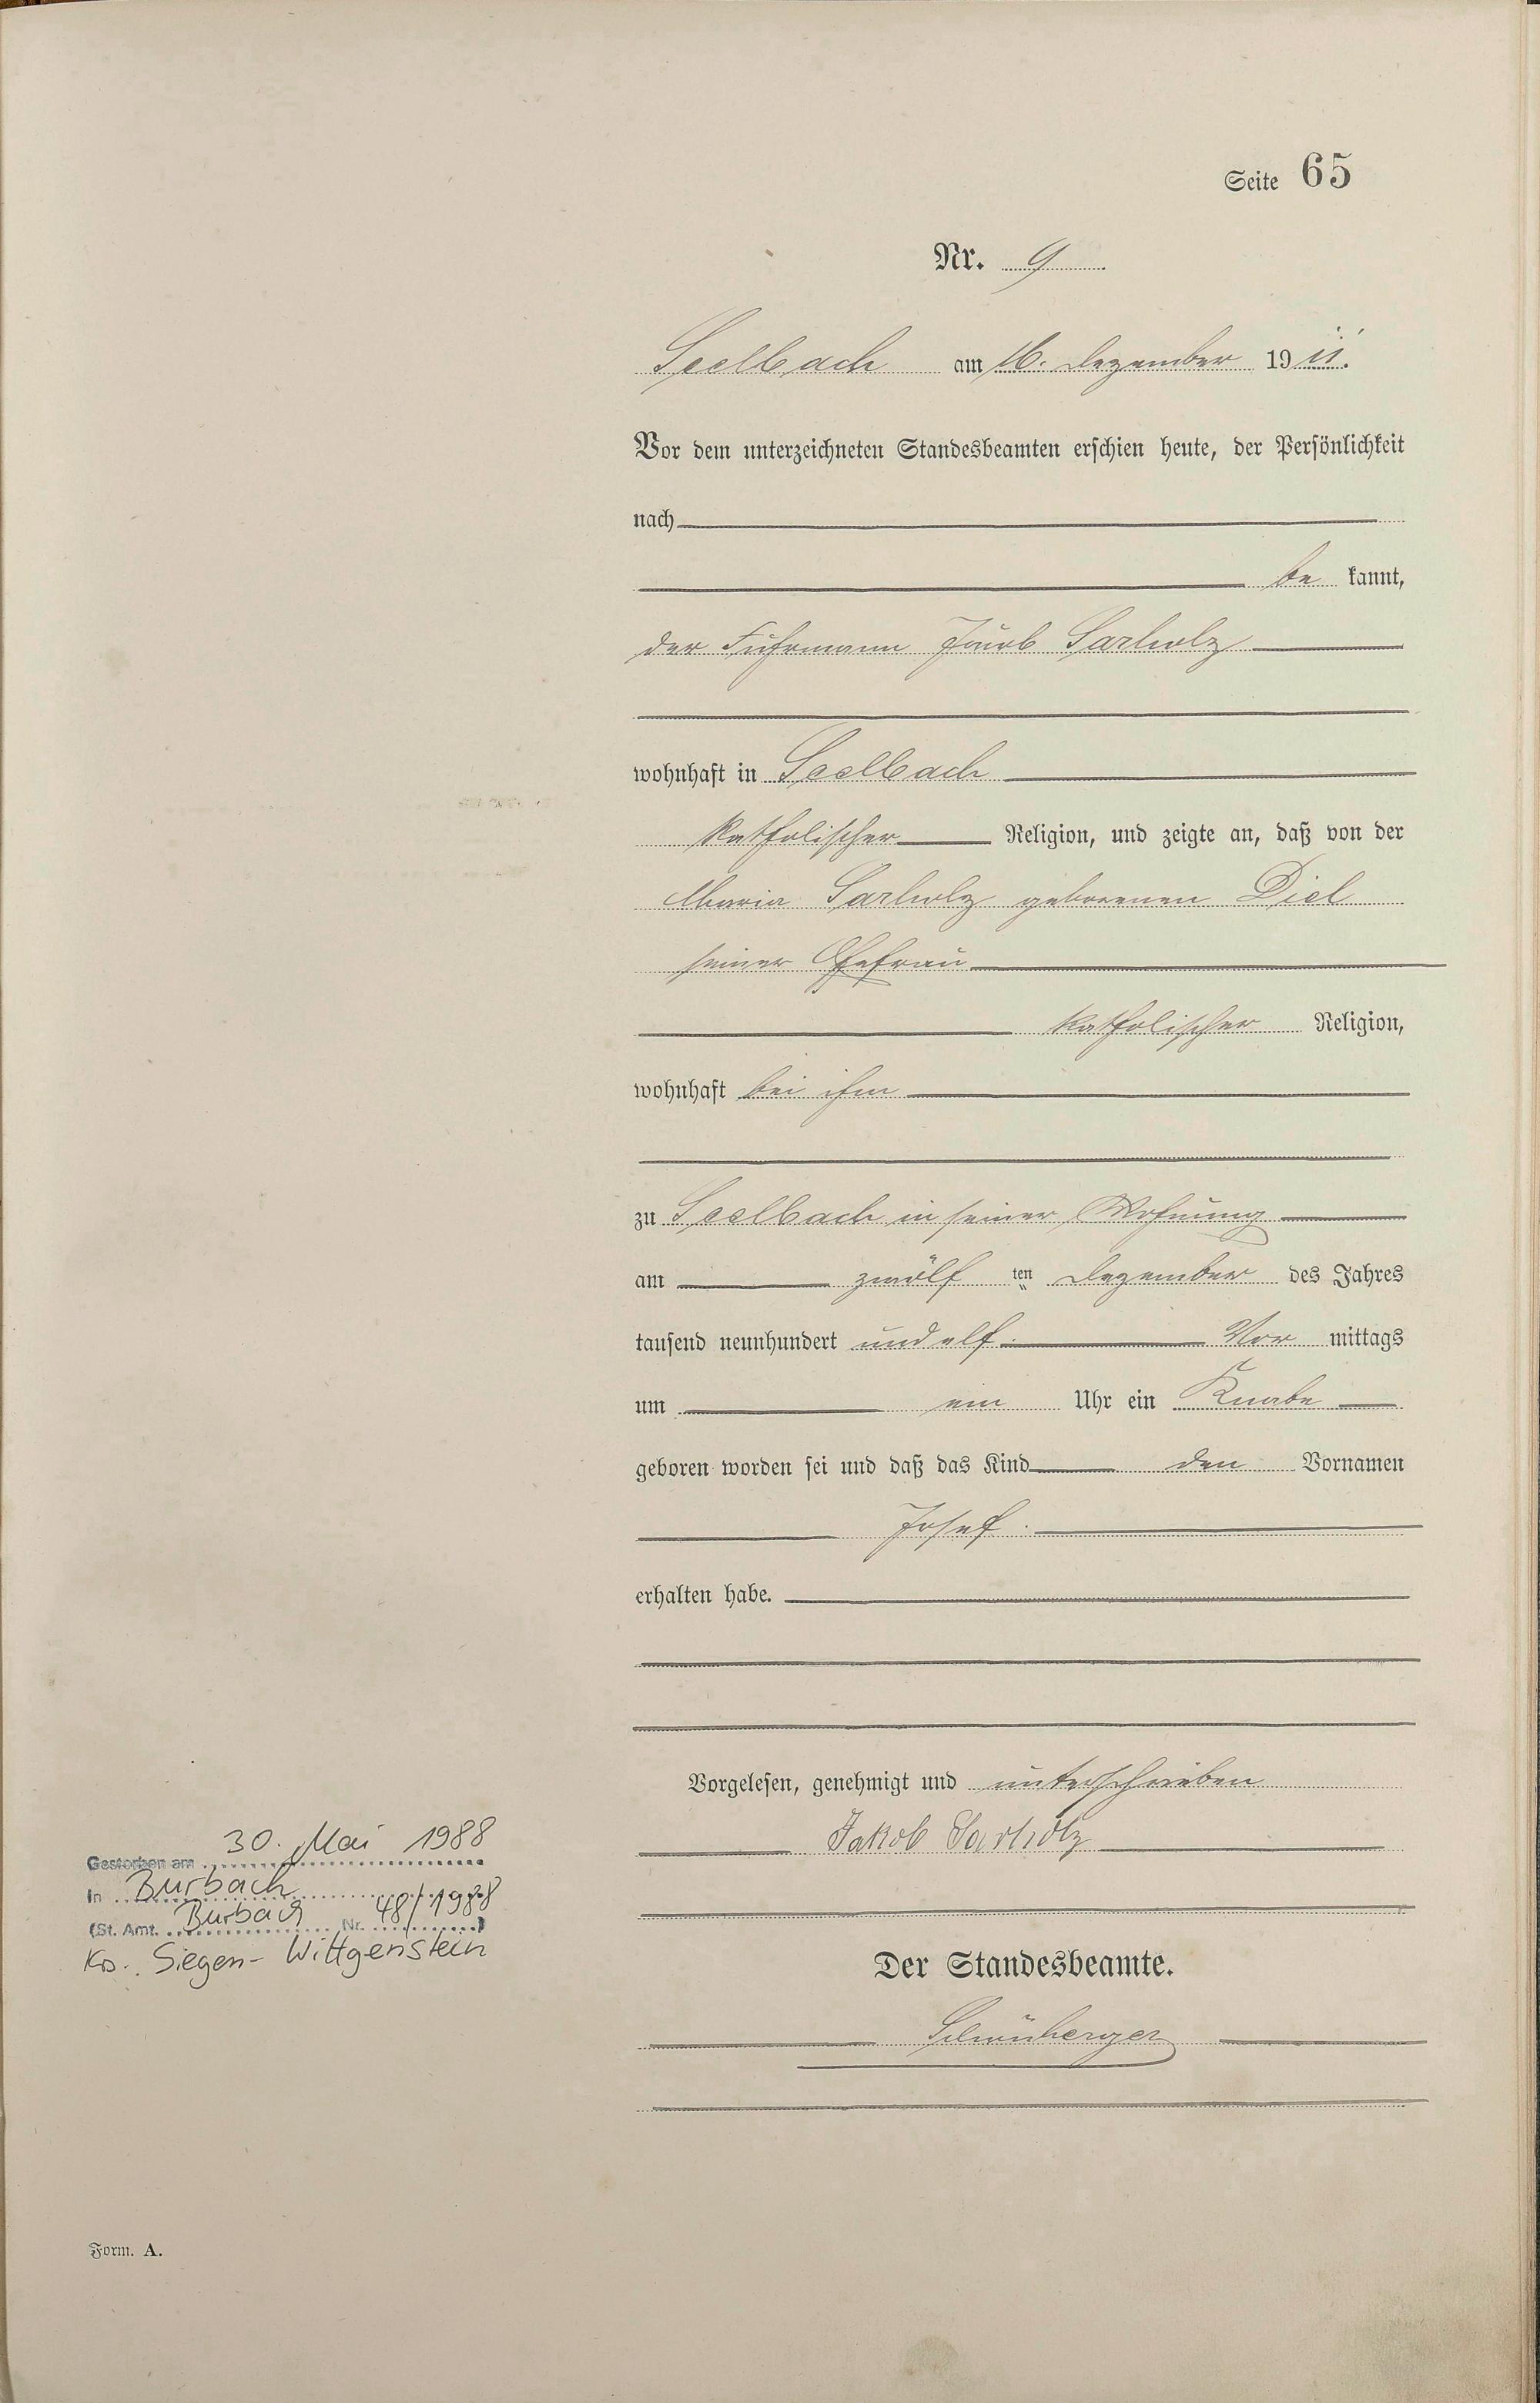 Seite 65
Nr. 9
Seelbach am 16. Dezember 19 11.
Vor dem unterzeichneten Standesbeamten erschien heute, der Persönlichkeit
nach
be kannt,
der Fuhrmann Jakob Sarholz
wohnhaft in Seelbach
katholischer Religion, und zeigte an, daß von der
Maria Sarholz geborenen Diel
seiner Ehefrau
katholischer Religion,
wohnhaft bei ihm
zu Seelbach in seiner Wohnung
am zwölf ten Dezember des Jahres
tausend neunhundert und elf. Vor mittags
um ein Uhr ein Knabe
geboren worden sei und daß das Kind den Vornamen
Josef.
erhalten habe.
Vorgelesen, genehmigt und unterschrieben
Jakob Sarholz
Der Standesbeamte.
Gestorben am 30. Mai 1988
In Burbach
(St. Amt. Burbach Nr. 48/1988)
Krs. Siegen-Wittgenstein
Form. A.